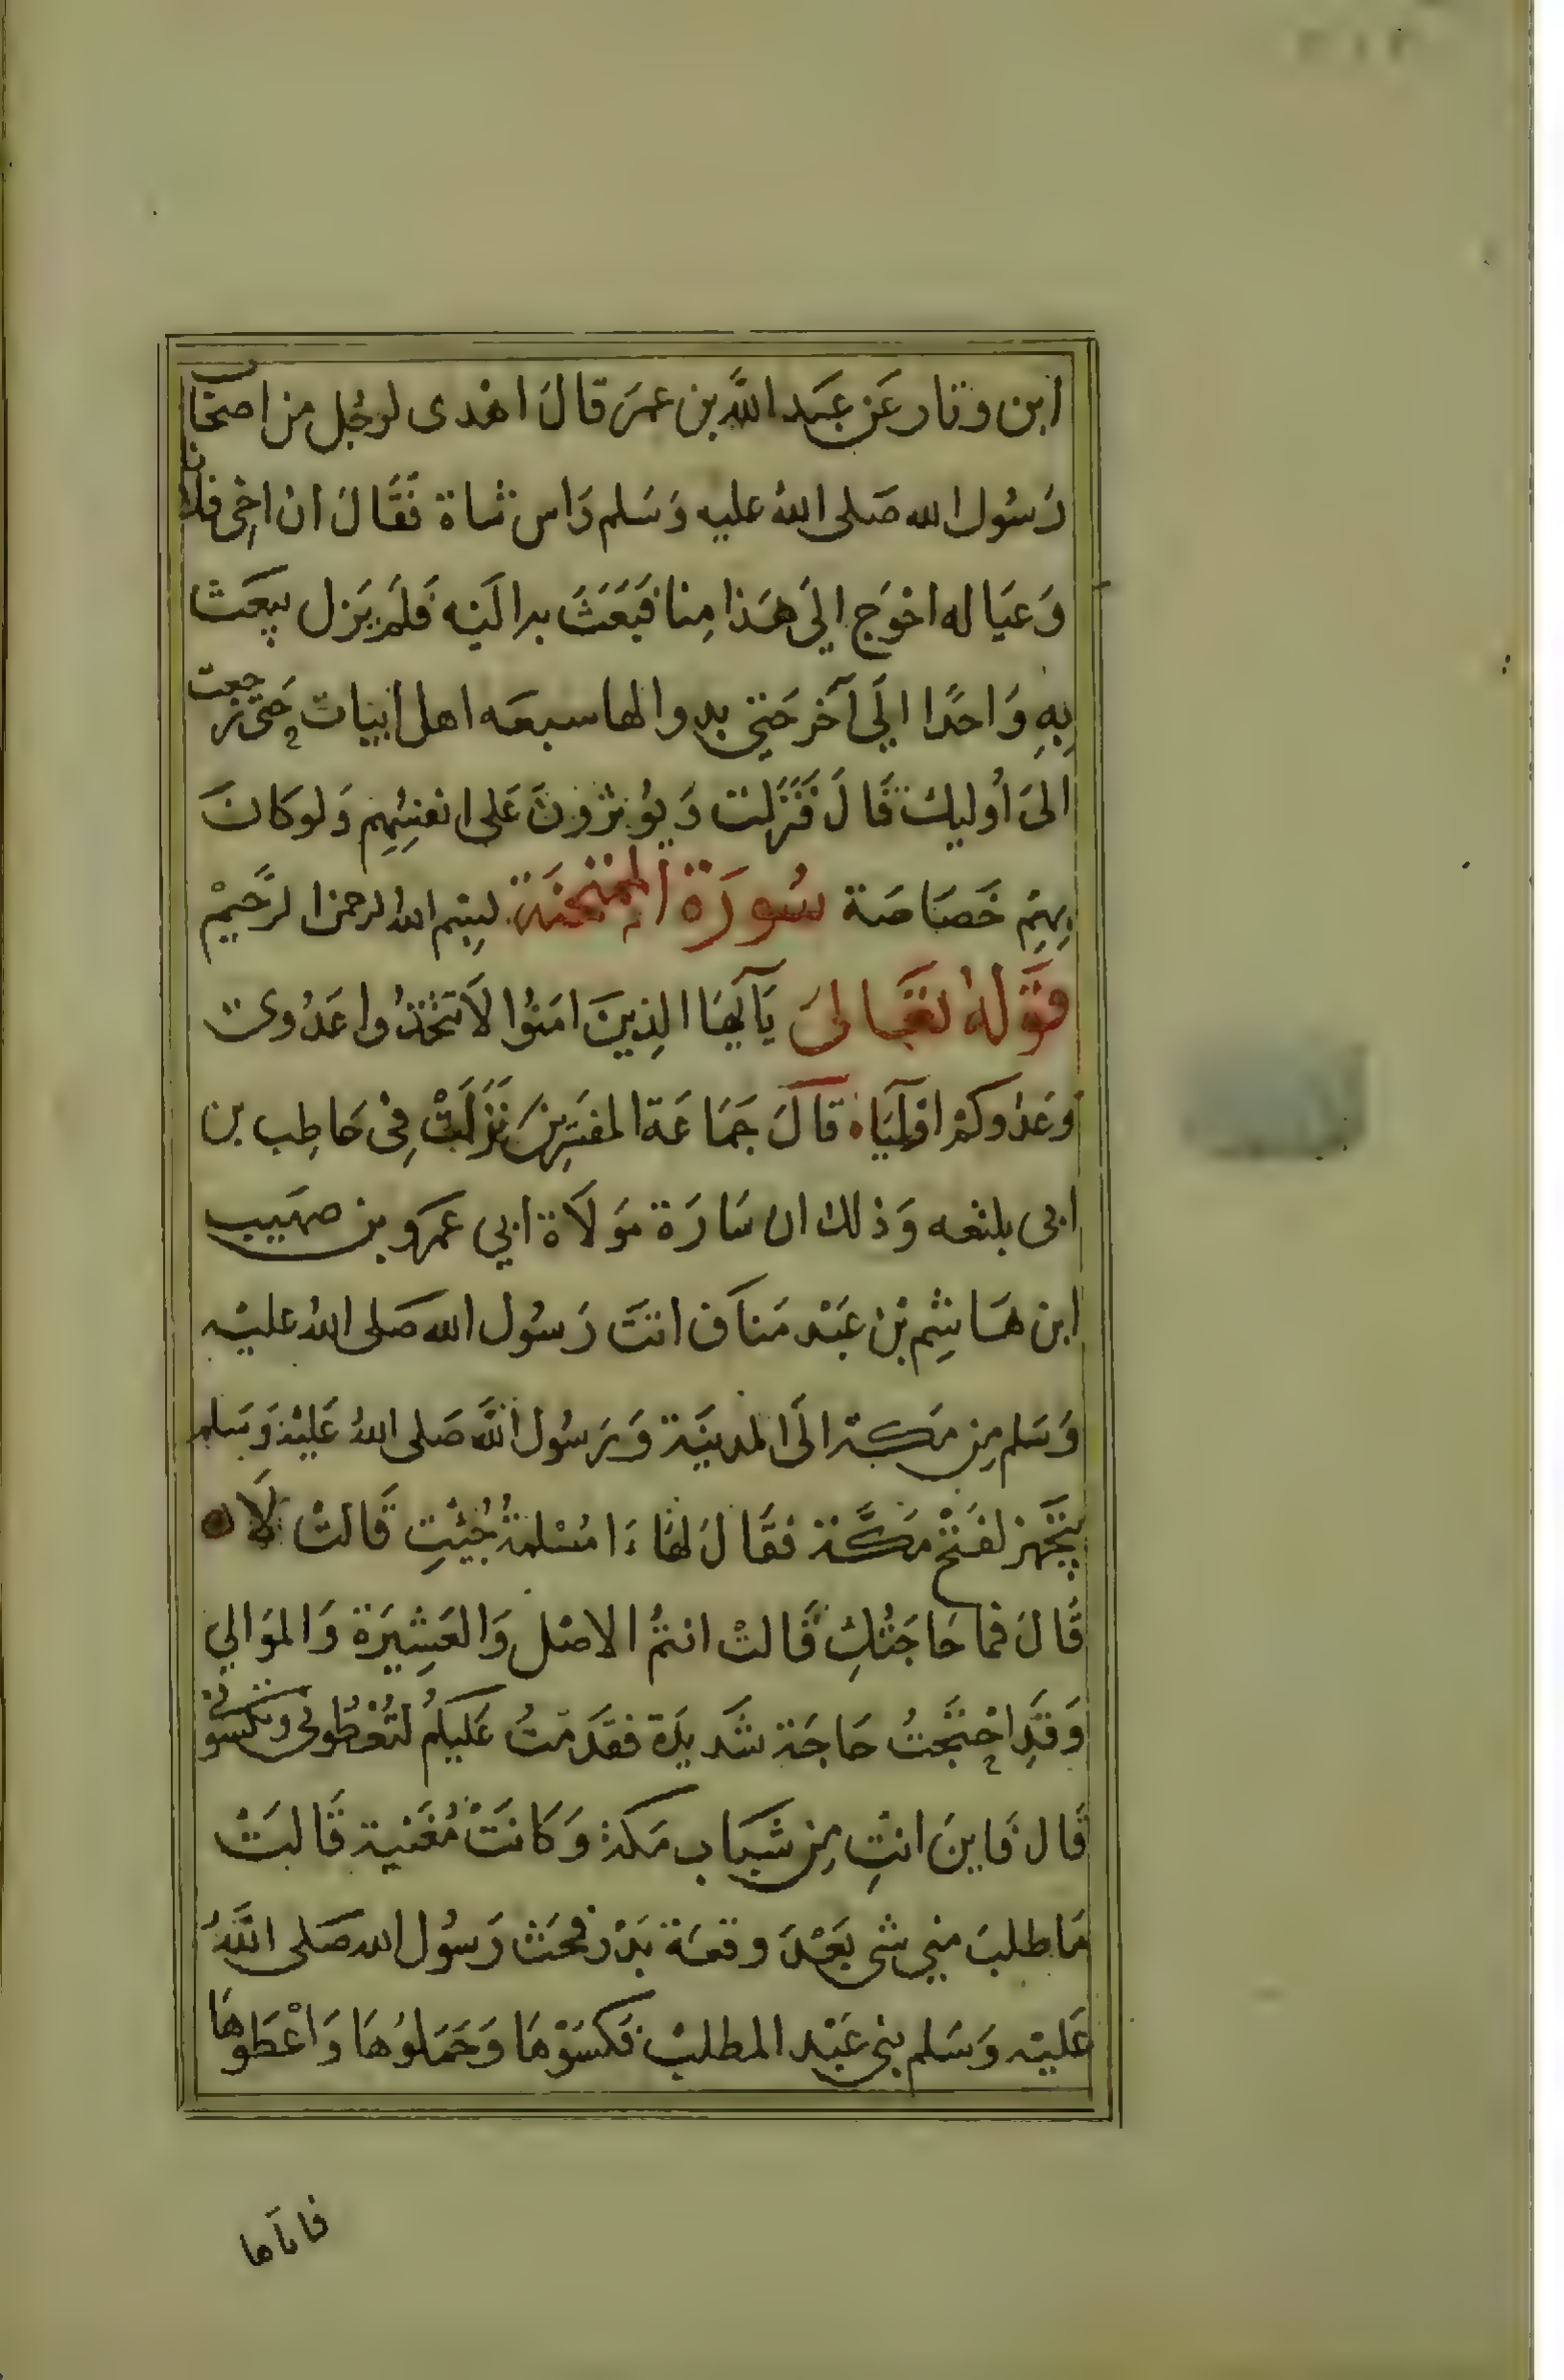 ابن وثار عَن عَبَد اللَّه بن عمرَ قالَ اهْدى لرجُل من اصحَاب
رَسُول الله صَلى اللهُ عليه وَسَلم رَاس شاة فقَالَ ان اخِى فلانا
وَعيَاله احْوَج الىَ هَذا مِنا فبَعَثَ به اليَه فَلَم يَزل يبعَث
بِهِ وَاحدًا الَى آخَر حَتى تداولها سبعَه اهل ابيات حَتى رجعت
الىَ أوليك قالَ فَنَزَلت وَيؤثرُونَ عَلى انفسِهِم وَلو كانَ
بِهِم خَصَاصَة سُورَة الممتحنَة بِسِم الله الرحمن الرَّحيمْ
قوَلهُ تعَالىَ يَآ أيهَا الذِينَ امَنُوا لاَ تتخذُوا عَدُوى
وَعَدُوكمْ اوْليَاء قالَ جَمَاعَة المفسَرِينَ نَزَلَتْ فِى حَاطِب بن
ابى بلتعه وَذلك ان سَارَة مَولَاة ابي عمَرو بن صهَيب
ابن هَاشِم بْن عَبْد مَناَف اتتَ رَسوُل الله صَلى اللهُ عليْه
وَسَلم مِن مَكة الَى المدينَة وَرَسُول اللَّه صَلى اللهُ عَليْه وَسَلم
يتَجَهز لفَتْح مَكَّة فقَالَ لهَا ءَا مُسْلمةً جُئتِ قَالتْ لَا
قَالَ فما حَاجَتُكِ قَالتْ انتمُ الاصْل وَالعَشِيرَة وَالموَالي
وَقدِ احْتَجتُ حَاجَة شَديدَة فقدَمتُ عَليكُم لتُعْطُونى وتكسُونى
قَال فَاينَ انتِ مِن شَبَاب مَكة وَكَانَتْ مُغَنية قَالتَ
مَا طلبَ مني شى بَعْدَ وقعَة بَدْر فحَث رَسوُل الله صَلى اللَّهُ
عَليْه وَسَلم بنى عَبْد المطلب فكسَوْهَا وَحَمَلوُهَا وَاعْطَوهَا
فاتاها